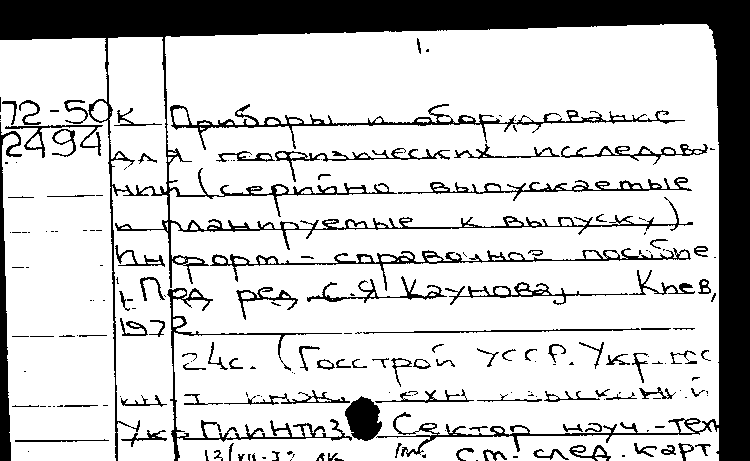 1.
72-50к Приборы и оборудование
2494 для геофизических исследова-
ний (серийно выпускаемые
и планируемые к выпуску).
Информ.-справочное пособие
[Под ред. С.Я Каунова]. Киев,
1972.
24с. (Госстрой УССР. Укр. гос
ин-т инж. техн изысканий
УкрГИИНТИЗ. Сектор науч.-техн
см. след. карт.